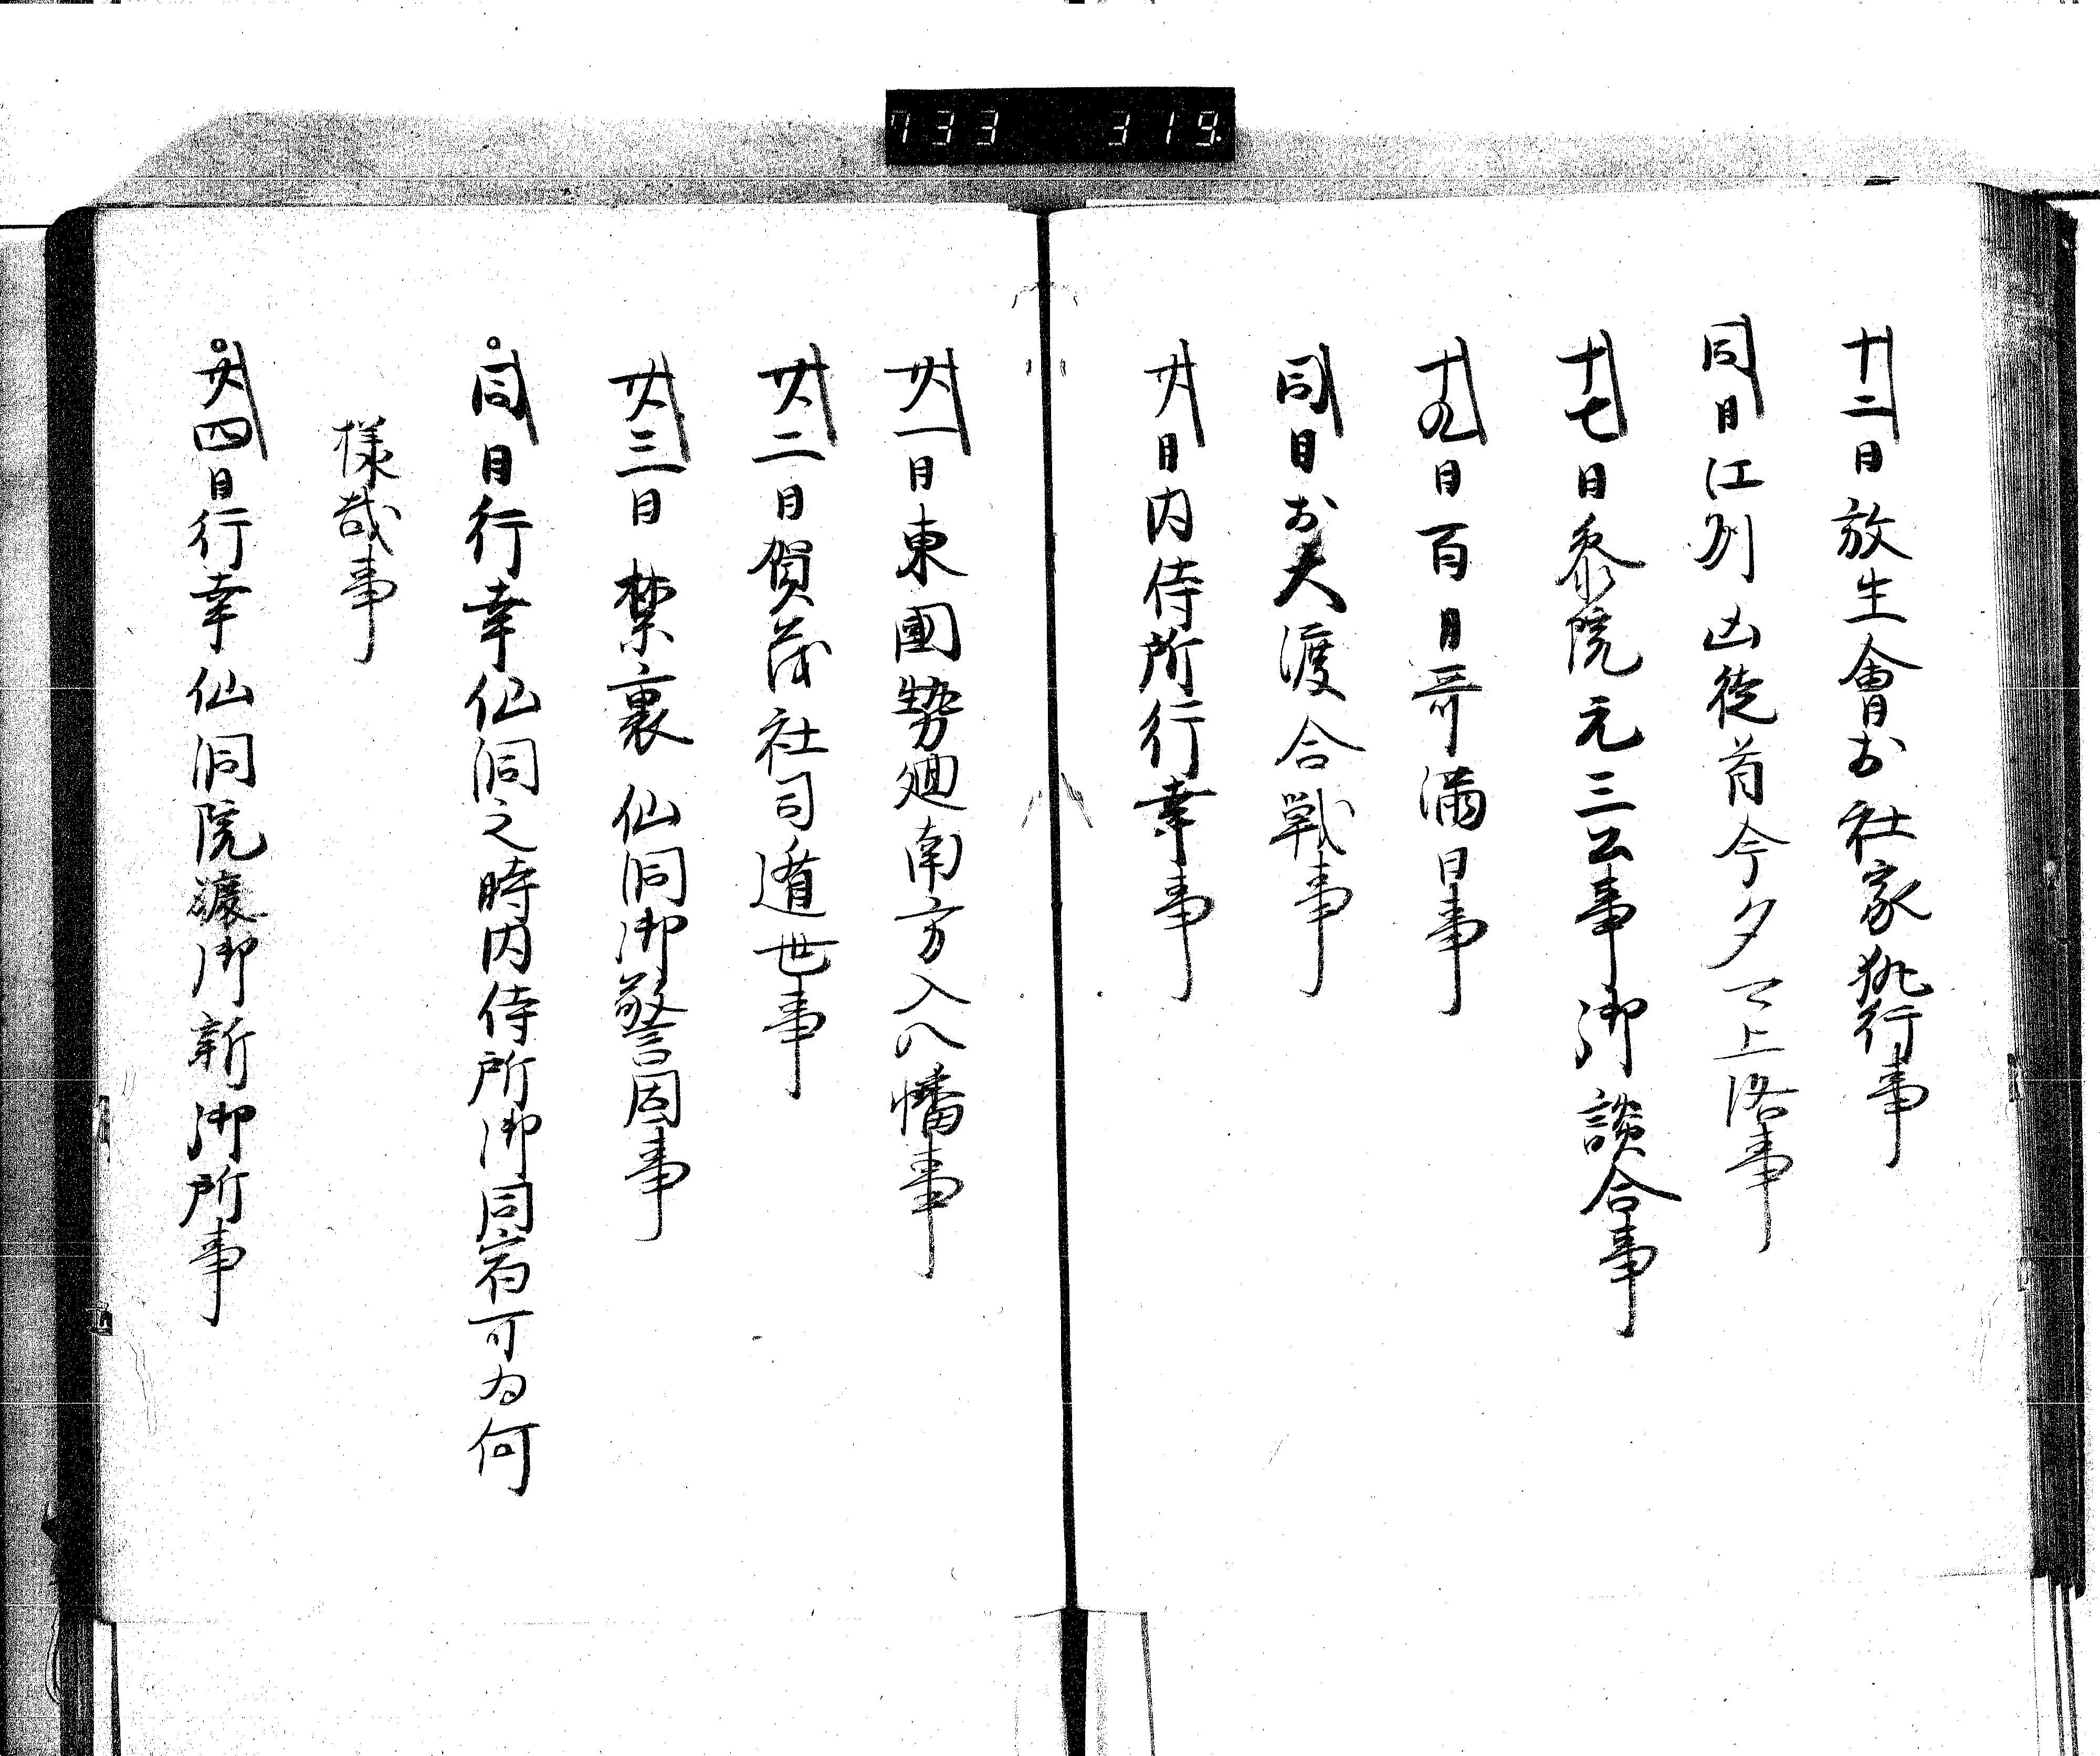 733 319.
十二日放生會於社家執行事
同日江列凶徒首今夕上洛事
十七日参院元三公事御談合事
十九日百日哥滿日事
同日於大渡合戰事
廿日内侍所行幸事
廿一日東國勢廻南方入八幡事
廿二日賀茂社司遁世事
廿三日禁裏仙洞御警固事
同日行幸仙洞之時内侍所御同宿可為何
様哉事
廿四日行幸仙洞院渡御新御所事